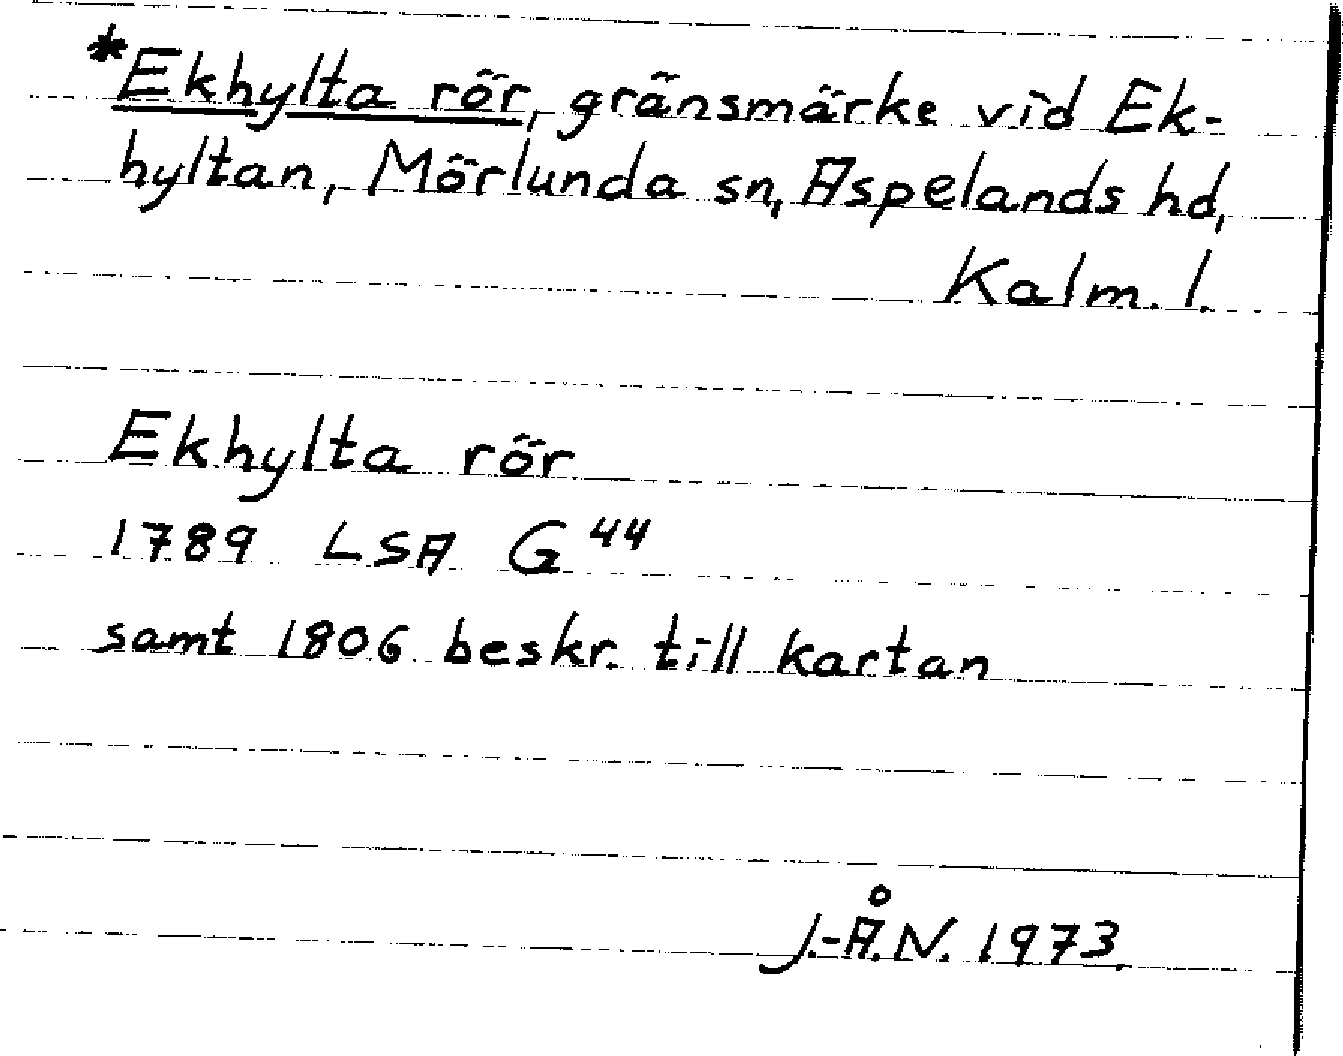 *Ekhylta rör, gränsmärke vid Ek-
hyltan, Mörlunda sn, Aspelands hd,
Kalm. l.
Ekhylta rör
1789 LSA G 44
samt 1806 beskr. till kartan
J.-Å.N. 1973.